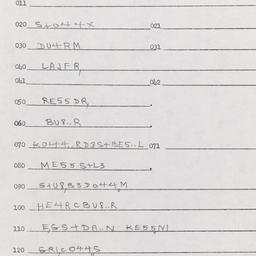 011
020 S+044X 021
030 DU4RM 031
040 LAJFR
041 042
050 RE55DR
060 BU8..R
070 K044..RD3S+BE5..L 071
080 ME55S+L3
090 S+U8,B33044,M
100 HE4RCBU8..R
110 EGS+DA..N KE55N1
120 GR1C044S